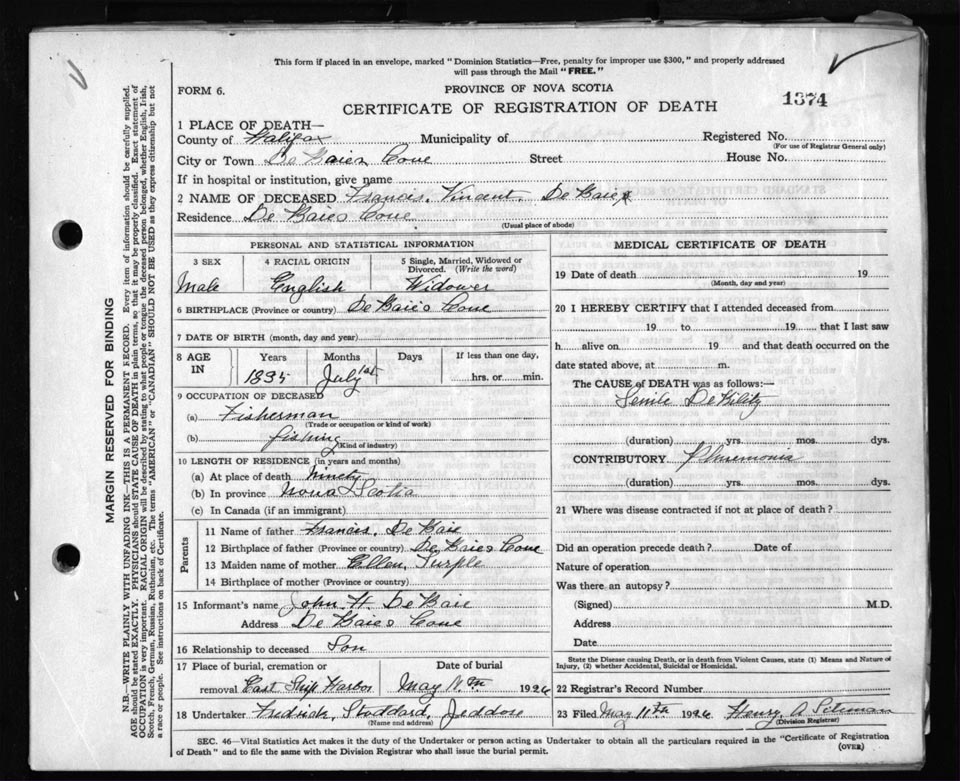 This form if placed in an envelope, marked "Dominion Statistics—Free, penalty for improper use $300," and properly addressed
will pass through the Mail "FREE."
FORM 6.
PROVINCE OF NOVA SCOTIA
1374
CERTIFICATE OF REGISTRATION OF DEATH
1 PLACE OF DEATH—
County of Halifax Municipality of Registered No.
(For use of Registrar General only)
City or Town De Baies Cove Street House No.
If in hospital or institution, give name
2 NAME OF DECEASED Francis, Vincent, De Baie
Residence De Baies Cove
(Usual place of abode)
PERSONAL AND STATISTICAL INFORMATION
3 SEX 4 RACIAL ORIGIN 5 Single, Married, Widowed or
Divorced. (Write the word)
Male English Widower
6 BIRTHPLACE (Province or country) De Baies Cove
7 DATE OF BIRTH (month, day and year)
8 AGE IN Years Months Days If less than one day,
1835 July 1st hrs. or min.
9 OCCUPATION OF DECEASED
(a) Fisherman
(Trade or occupation or kind of work)
(b) fishing
(Kind of industry)
10 LENGTH OF RESIDENCE (in years and months)
(a) At place of death Ninety
(b) In province Nova Scotia
(c) In Canada (if an immigrant)
Parents
11 Name of father Francis, De Baie
12 Birthplace of father (Province or country) De Baies Cove
13 Maiden name of mother Ellen, Turple
14 Birthplace of mother (Province or country)
15 Informant's name John H. De Baie
Address De Baies Cove
16 Relationship to deceased Son
17 Place of burial, cremation or Date of burial
removal East Ship Harbor May 11th 1926
18 Undertaker Fredrick, Stoddard, Jeddore
(Name and address)
MEDICAL CERTIFICATE OF DEATH
19 Date of death 19
(Month, day and year)
20 I HEREBY CERTIFY that I attended deceased from
19 to 19 that I last saw
h alive on 19 and that death occurred on the
date stated above, at m.
The CAUSE of DEATH was as follows:—
Senile Debility
(duration) yrs. mos. dys.
CONTRIBUTORY Pneumonia
(duration) yrs. mos. dys.
21 Where was disease contracted if not at place of death?
Did an operation precede death? Date of
Nature of operation
Was there an autopsy?
(Signed) M.D.
Address
Date
State the Disease causing Death, or in death from Violent Causes, state (1) Means and Nature of
Injury, (2) whether Accidental, Suicidal or Homicidal.
22 Registrar's Record Number
23 Filed May 11th 1926 Henry A
(Division Registrar)
SEC. 46—Vital Statistics Act makes it the duty of the Undertaker or person acting as Undertaker to obtain all the particulars required in the "Certificate of Registration
of Death" and to file the same with the Division Registrar who shall issue the burial permit.
(OVER)
MARGIN RESERVED FOR BINDING
N.B.—WRITE PLAINLY WITH UNFADING INK—THIS IS A PERMANENT RECORD. Every item of information should be carefully supplied.
AGE should be stated EXACTLY. PHYSICIANS should STATE CAUSE OF DEATH in plain terms, so that it may be properly classified. Exact statement of
OCCUPATION is very important. RACIAL ORIGIN will be described by stating to what people or tongue the deceased person belonged, whether English, Irish,
Scotch, French, German, Russian, Ruthenian, etc. The terms "AMERICAN" or "CANADIAN" SHOULD NOT BE USED as they express citizenship but not
a race or people. See instructions on back of Certificate.